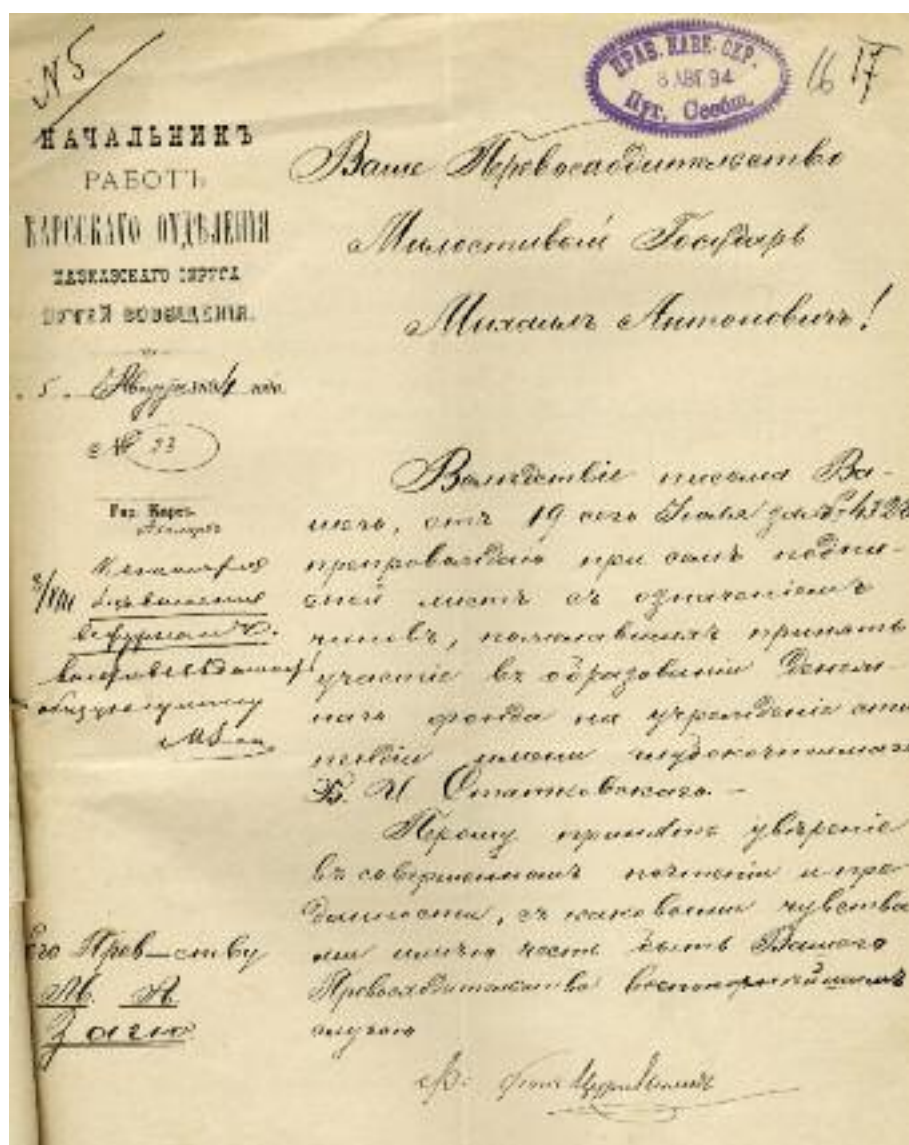 № 5
ПРАВ. КАВК. ОКР.
8 АВГ. 94
Пут. Сообщ.
16
НАЧАЛЬНИКЪ
РАБОТЪ
КАРССКАГО ОТДѢЛЕНІЯ
КАВКАЗСКАГО ОКРУГА
ПУТЕЙ СООБЩЕНІЯ.
5 Августа 1894 года
№ 23
Гор. Карсъ
Ваше Превосходительство
Милостивый Государь
Михаилъ Антоновичъ!
Вслѣдствіе письма Ва-
шего, отъ 19 сего Іюля за № 4322
препровождаю при семъ подпи-
сной листъ съ означеніемъ
чиновъ, пожелавшихъ принять
участіе въ образованіи денеж-
наго фонда на учрежденіе сти-
пендіи имени глубокочтимаго
Б. И Статковскаго. –
Прошу принять увѣреніе
въ совершенномъ почтеніи и пре-
данности, съ каковыми чувства-
ми имѣю честь быть Вашего
Превосходительства всепокорнѣйшимъ
слугою
8/VIII
Его Прев–ству
М. А.